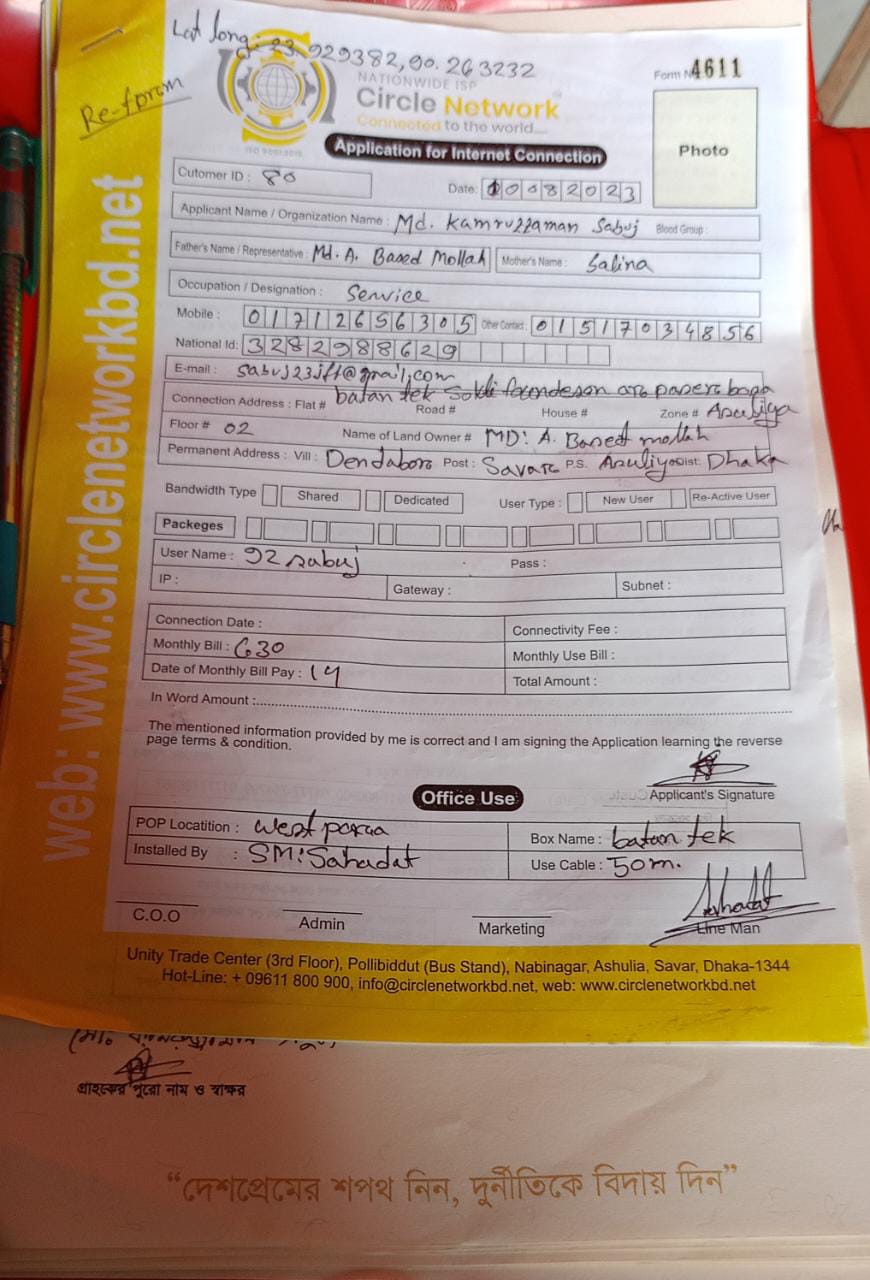 Lat long: 23.929382,90.263232
Re-foram
Form N 4611
NATIONWIDE ISP
Circle Network
Connected to the world....
ISO 9001:2015
Photo
Application for Internet Connection
Cutomer ID : 80
Date: 10082023
Applicant Name / Organization Name : Md. Kamruzzaman Sabuj Blood Group :
Father's Name / Representative : Md. A. Based Mollah Mother's Name : Salina
Occupation / Designation : Service
Mobile : 01712656305 Other Contact : 01517034856
National Id: 3282988629
E-mail : sabuj23ift@gmail.com
Connection Address : Flat # batan tek Road # House # Zone # Asuliya
Floor # 02 Name of Land Owner # MD: A. Based mollah
Permanent Address : Vill : Dendabora Post : Savare P.S. Asuliya Dist: Dhaka
Bandwidth Type Shared Dedicated User Type : New User Re-Active User
Packeges
User Name : 92sabuj Pass :
IP : Gateway : Subnet :
Connection Date : Connectivity Fee :
Monthly Bill : 630 Monthly Use Bill :
Date of Monthly Bill Pay : 14 Total Amount :
In Word Amount :
The mentioned information provided by me is correct and I am signing the Application learning the reverse
page terms & condition.
Applicant's Signature
Office Use
POP Locatition : West para Box Name : batan tek
Installed By : SM: Sahadat Use Cable : 50m.
Sahadat
C.O.O Admin Marketing Line Man
Unity Trade Center (3rd Floor), Pollibiddut (Bus Stand), Nabinagar, Ashulia, Savar, Dhaka-1344
Hot-Line: + 09611 800 900, info@circlenetworkbd.net, web: www.circlenetworkbd.net
web: www.circlenetworkbd.net
গ্রাহকের পুরো নাম ও স্বাক্ষর
“দেশপ্রেমের শপথ নিন, দুর্নীতিকে বিদায় দিন”